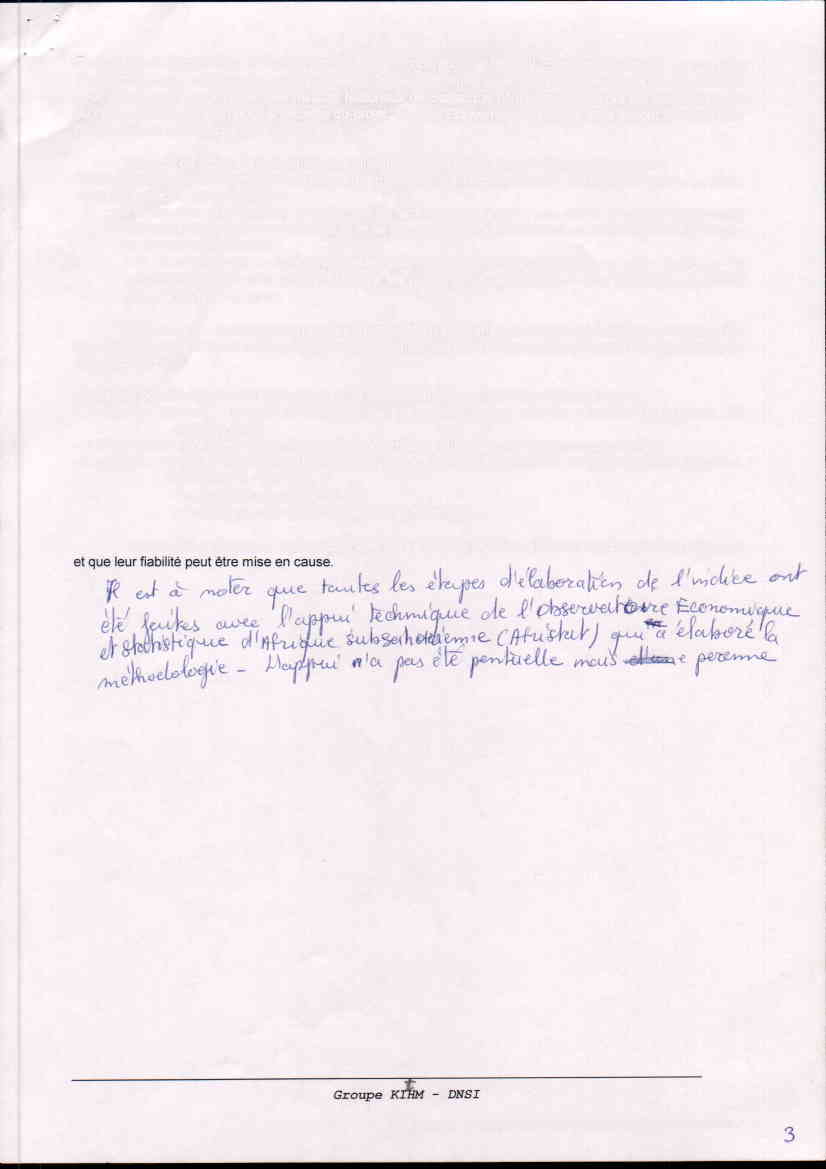 et que leur fiabilité peut être mise en cause.
Il est à noter que toutes les étapes d'élaboration de l'indice ont
été faites avec l'appui technique de l'Observatoire Economique
et statistique d'Afrique subsaharienne (Afristat) qui a élaboré la
méthodologie - L'appui n'a pas été pontuelle mais perenne
Groupe KIHM - DNSI
3